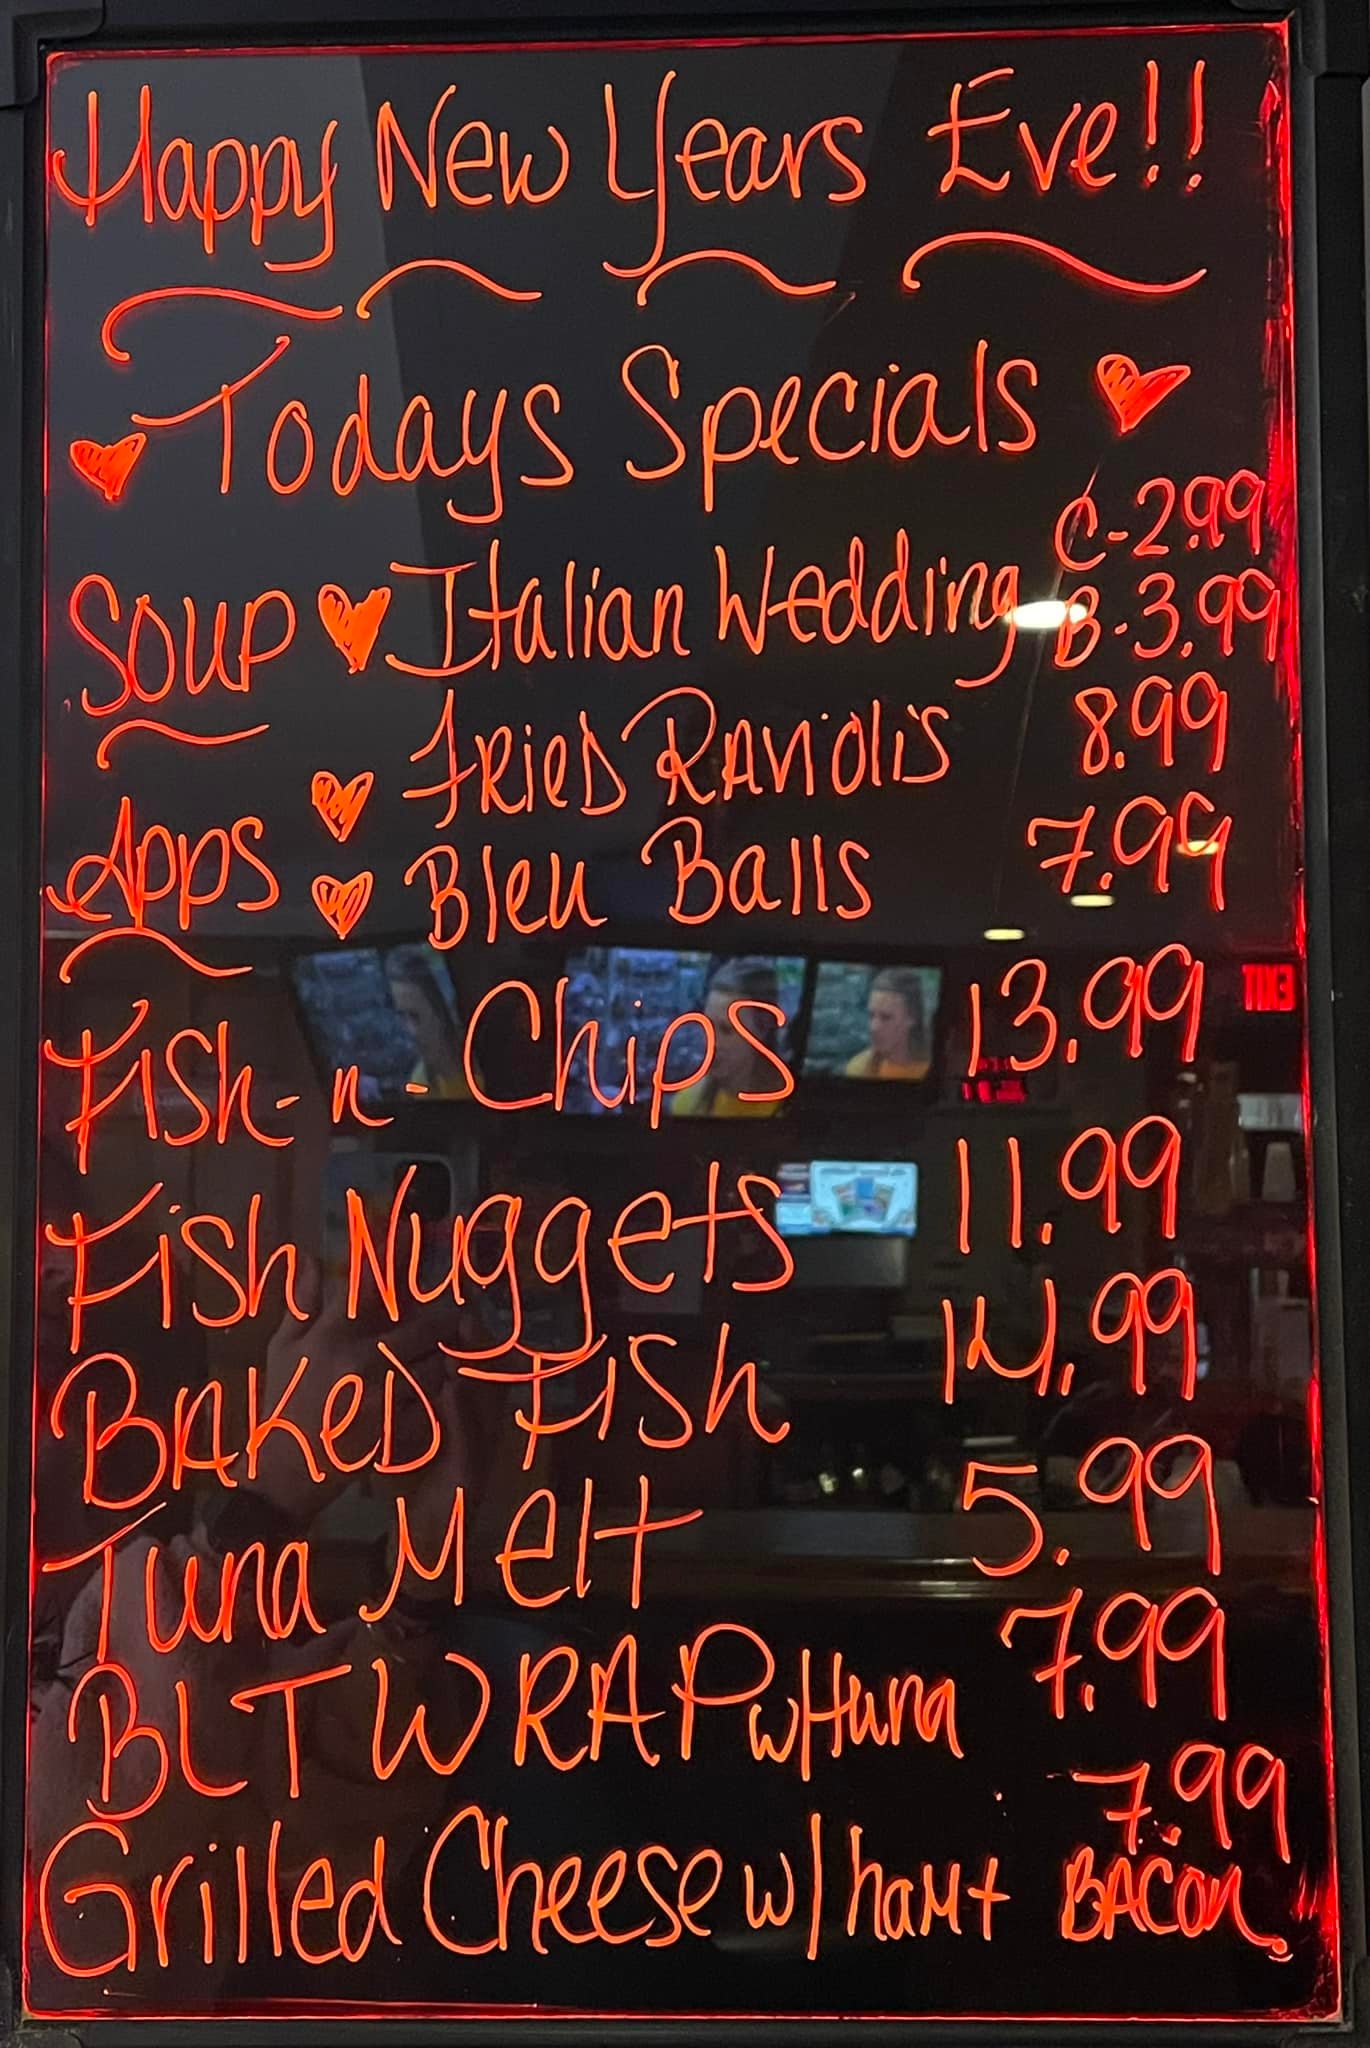 Happy New Years Eve!!
Todays Specials
C-2.99
Soup Italian Wedding B-3.99
Fried Raviolis 8.99
Apps Bleu Balls 7.99
Fish-n-Chips 13.99
Fish Nuggets 11.99
Baked Fish 14.99
Tuna Melt 5.99
BLT WRAP w/tuna 7.99
7.99
Grilled Cheese w/ham + BACON
EXIT